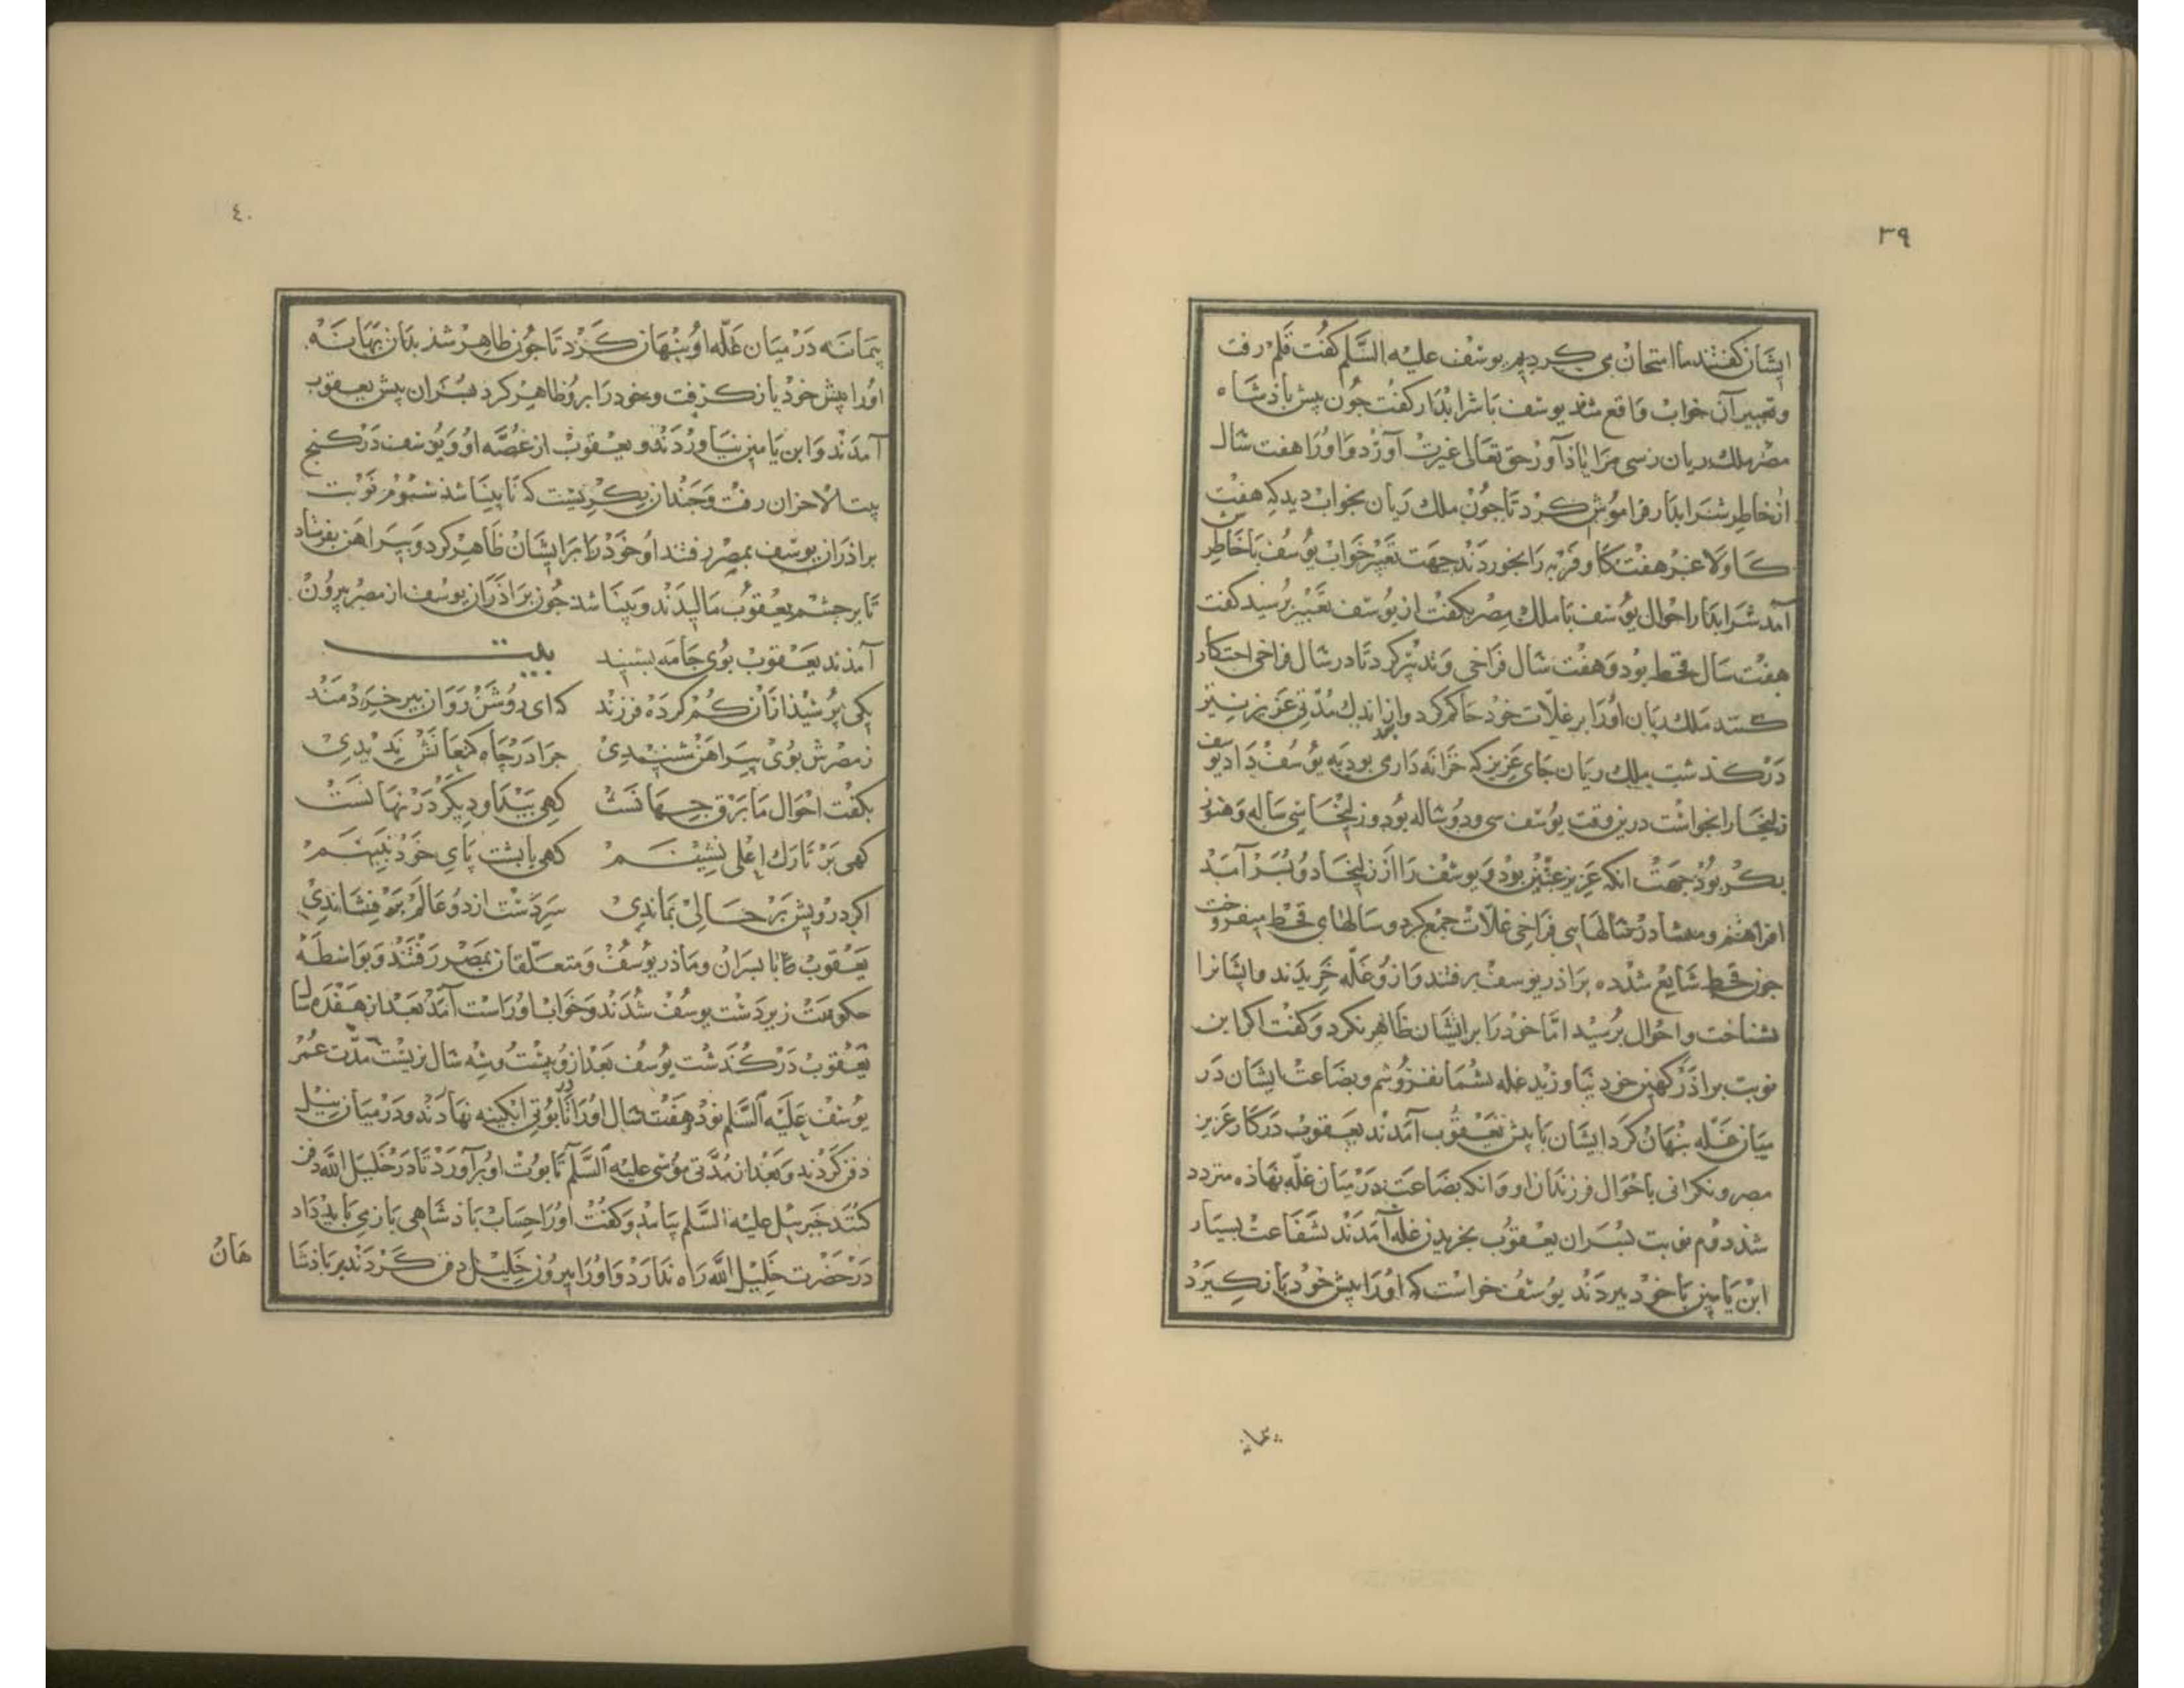 ٣٩
ایشان کفتند ما امتحان می کردیم یوسف علیه السّلم کفت قلم رفت
و تعبیر آن خواب واقع شذ یوسف با شرابدار کفت جون پیش باذشاه
مصر ملک ریان رسی مرا یاذ آور حق تعالی غیرت آورد و او را هفت سال
از خاطر شرابدار فراموش کرد تا جون ملک ریان بخواب دید که هفت
کاو لاغر هفت کاو فربه را بخوردند جهت تعبیر خواب یوسفش با خاطر
آمد شرابدار احوال یوسف با ملک مصر بکفت از یوسف تعبیر برسید کفت
هفت سال قحط بود و هفت سال فراخی و تدبیر کرد تا در سال فراخی احتکار
کنند ملک ریان او را بر غلات خود حاکم کرد و از اندک مدتی عزیز نیز
درکذشت ملک ریان جای عزیز که خزانه داری بود به یوسف داد یوسف
زلیخا را بخواست درین وقت یوسف سی و دو ساله بود و زلیخا سی ساله و هنوز
بکر بود جهت انکه عزیز عنین بود و یوسف را از زلیخا دو بسر آمد
افراهیم و میشا در سالهای فراخی غلات جمع کرد و سالهای قحط میفروخت
جون قحط شایع شد ده براذر یوسف برفتند و ازو غله خریدند و ایشانرا
بشناخت و احوال برسید اما خود را بر ایشان ظاهر نکرد و کفت اکر این
نوبت براذر کهین خود نیاورید غله بشما نفروشم و بضاعت ایشان در
میان غله بنهان کرد ایشان با پیش یعقوب آمدند یعقوب در کار عزیز
مصر و نکرانی با حوال فرزندان او و انکه بضاعت در میان غله نهاذه متردد
شد دوم نوبت بسران یعقوب بخریدن غله آمدند بشفاعت بسیار
ابن یامین با خود ببردند یوسف خواست که او را پیش خود باز کیرد
پیمانه
٤٠
پیمانه در میان غلّه او بنهان کرد تا جون ظاهر شذ بدان بهانه
او را پیش خود باز کرفت و خود را برو ظاهر کرد بسران پیش یعقوب
آمدند و ابن یامین نیاوردند و یعقوب از غصّه او و یوسف در کنج
بیت الاحزان رفت و جندان بکریست که نابینا شذ سوم نوبت
براذران یوسف بمصر رفتند او خود را بر ایشان ظاهر کرد و پیراهن بفرستاد
تا بر جشم یعقوب مالیدند و بینا شد جون براذران یوسف از مصر بیرون
آمذند یعقوب بوی جامه بشنید بیت
یکی پرسید از آن کم کرده فرزند که ای روشن روان پیر خردمند
ز مصرش بوی پیراهن شنیدی جرا در چاه کنعانش ندیدی
بکفت احوال ما برق جهانست کهی پیدا و دیکر در نهانست
کهی بر تارک اعلی نشینم کهی با بشت پای خود نبینم
اکر درویش بر حالی بماندی سر دست از دو عالم بر فشاندی
یعقوب با بسران و ماذر یوسف و متعلّقان بمصر رفتند و بواسطه
حکومت زیر دست یوسف شدند و خواب او راست آمد بعد از هفده سال
یعقوب درکذشت یوسف بعد ازو بیست و سه سال بزیست مدّت عمر
یوسف علیه السّلم نود و هفت سال او را در تابوتی ابکینه نهادند و در میان نیل
دفن کردند و بعد از مدّتی موسی علیه السّلم تابوت او برآورد تا در خلیل الله دفن
کنند جبرئیل علیه السّلم بیامد و کفت او را حساب باذشاهی باز می باید داد
در حضرت خلیل الله راه ندارد و او را بیرون خلیل دفن کردند بر باذشا
هان